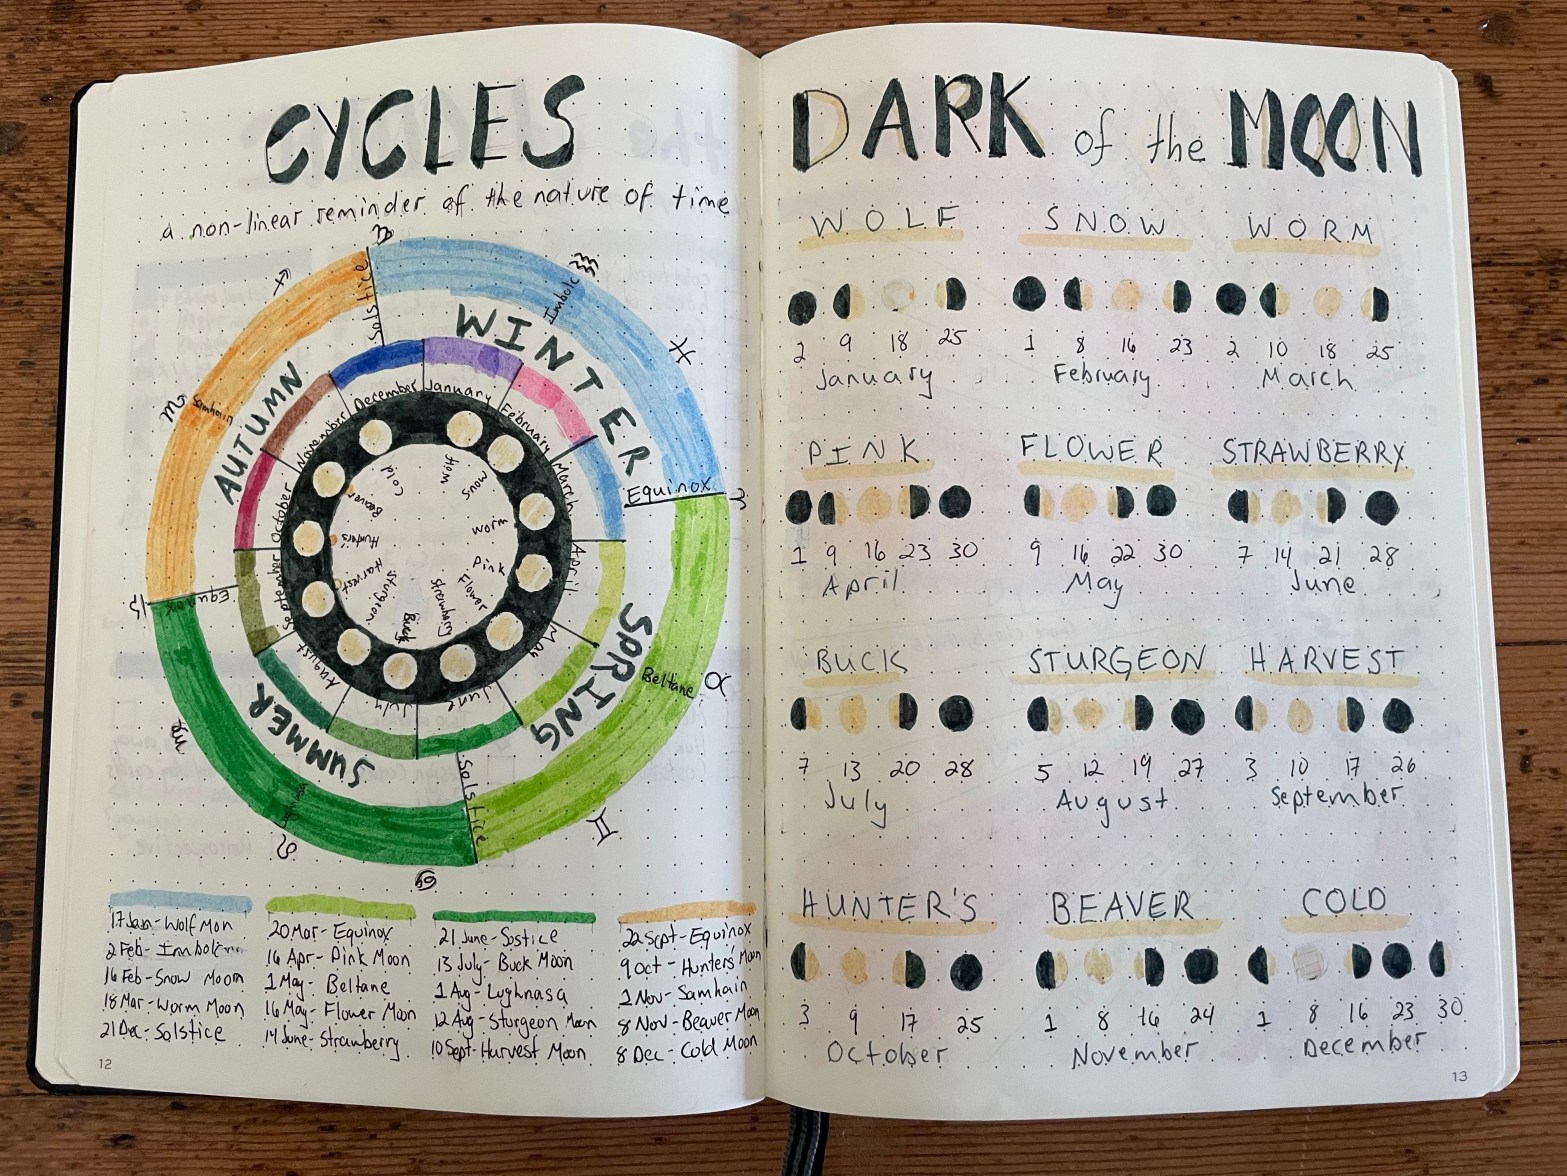 CYCLES
a non-linear reminder of the nature of time
Solstice
Imbolc
WINTER
Equinox
AUTUMN
Samhain
SPRING
Beltane
SUMMER
Lughnasa
Solstice
Equinox
December
January
February
March
April
May
June
July
August
September
October
November
Wolf
Snow
Worm
Pink
Flower
Strawberry
Buck
Sturgeon
Harvest
Hunters
Beaver
Cold
17 Jan - Wolf Mon
2 Feb - Imbolc
16 Feb - Snow Moon
18 Mar - Worm Moon
21 Dec - Solstice
20 Mar - Equinox
16 Apr - Pink Moon
1 May - Beltane
16 May - Flower Moon
14 June - Strawberry
21 June - Sostice
13 July - Buck Moon
1 Aug - Lughnasa
12 Aug - Sturgeon Moon
10 Sept - Harvest Moon
22 Sept - Equinox
9 Oct - Hunters' Moon
1 Nov - Samhain
8 Nov - Beaver Moon
8 Dec - Cold Moon
12
DARK of the MOON
WOLF SNOW WORM
2 9 18 25 1 8 16 23 2 10 18 25
January February March
PINK FLOWER STRAWBERRY
1 9 16 23 30 9 16 22 30 7 14 21 28
April May June
BUCK STURGEON HARVEST
7 13 20 28 5 12 19 27 3 10 17 26
July August September
HUNTER'S BEAVER COLD
3 9 17 25 1 8 16 24 1 8 16 23 30
October November December
13